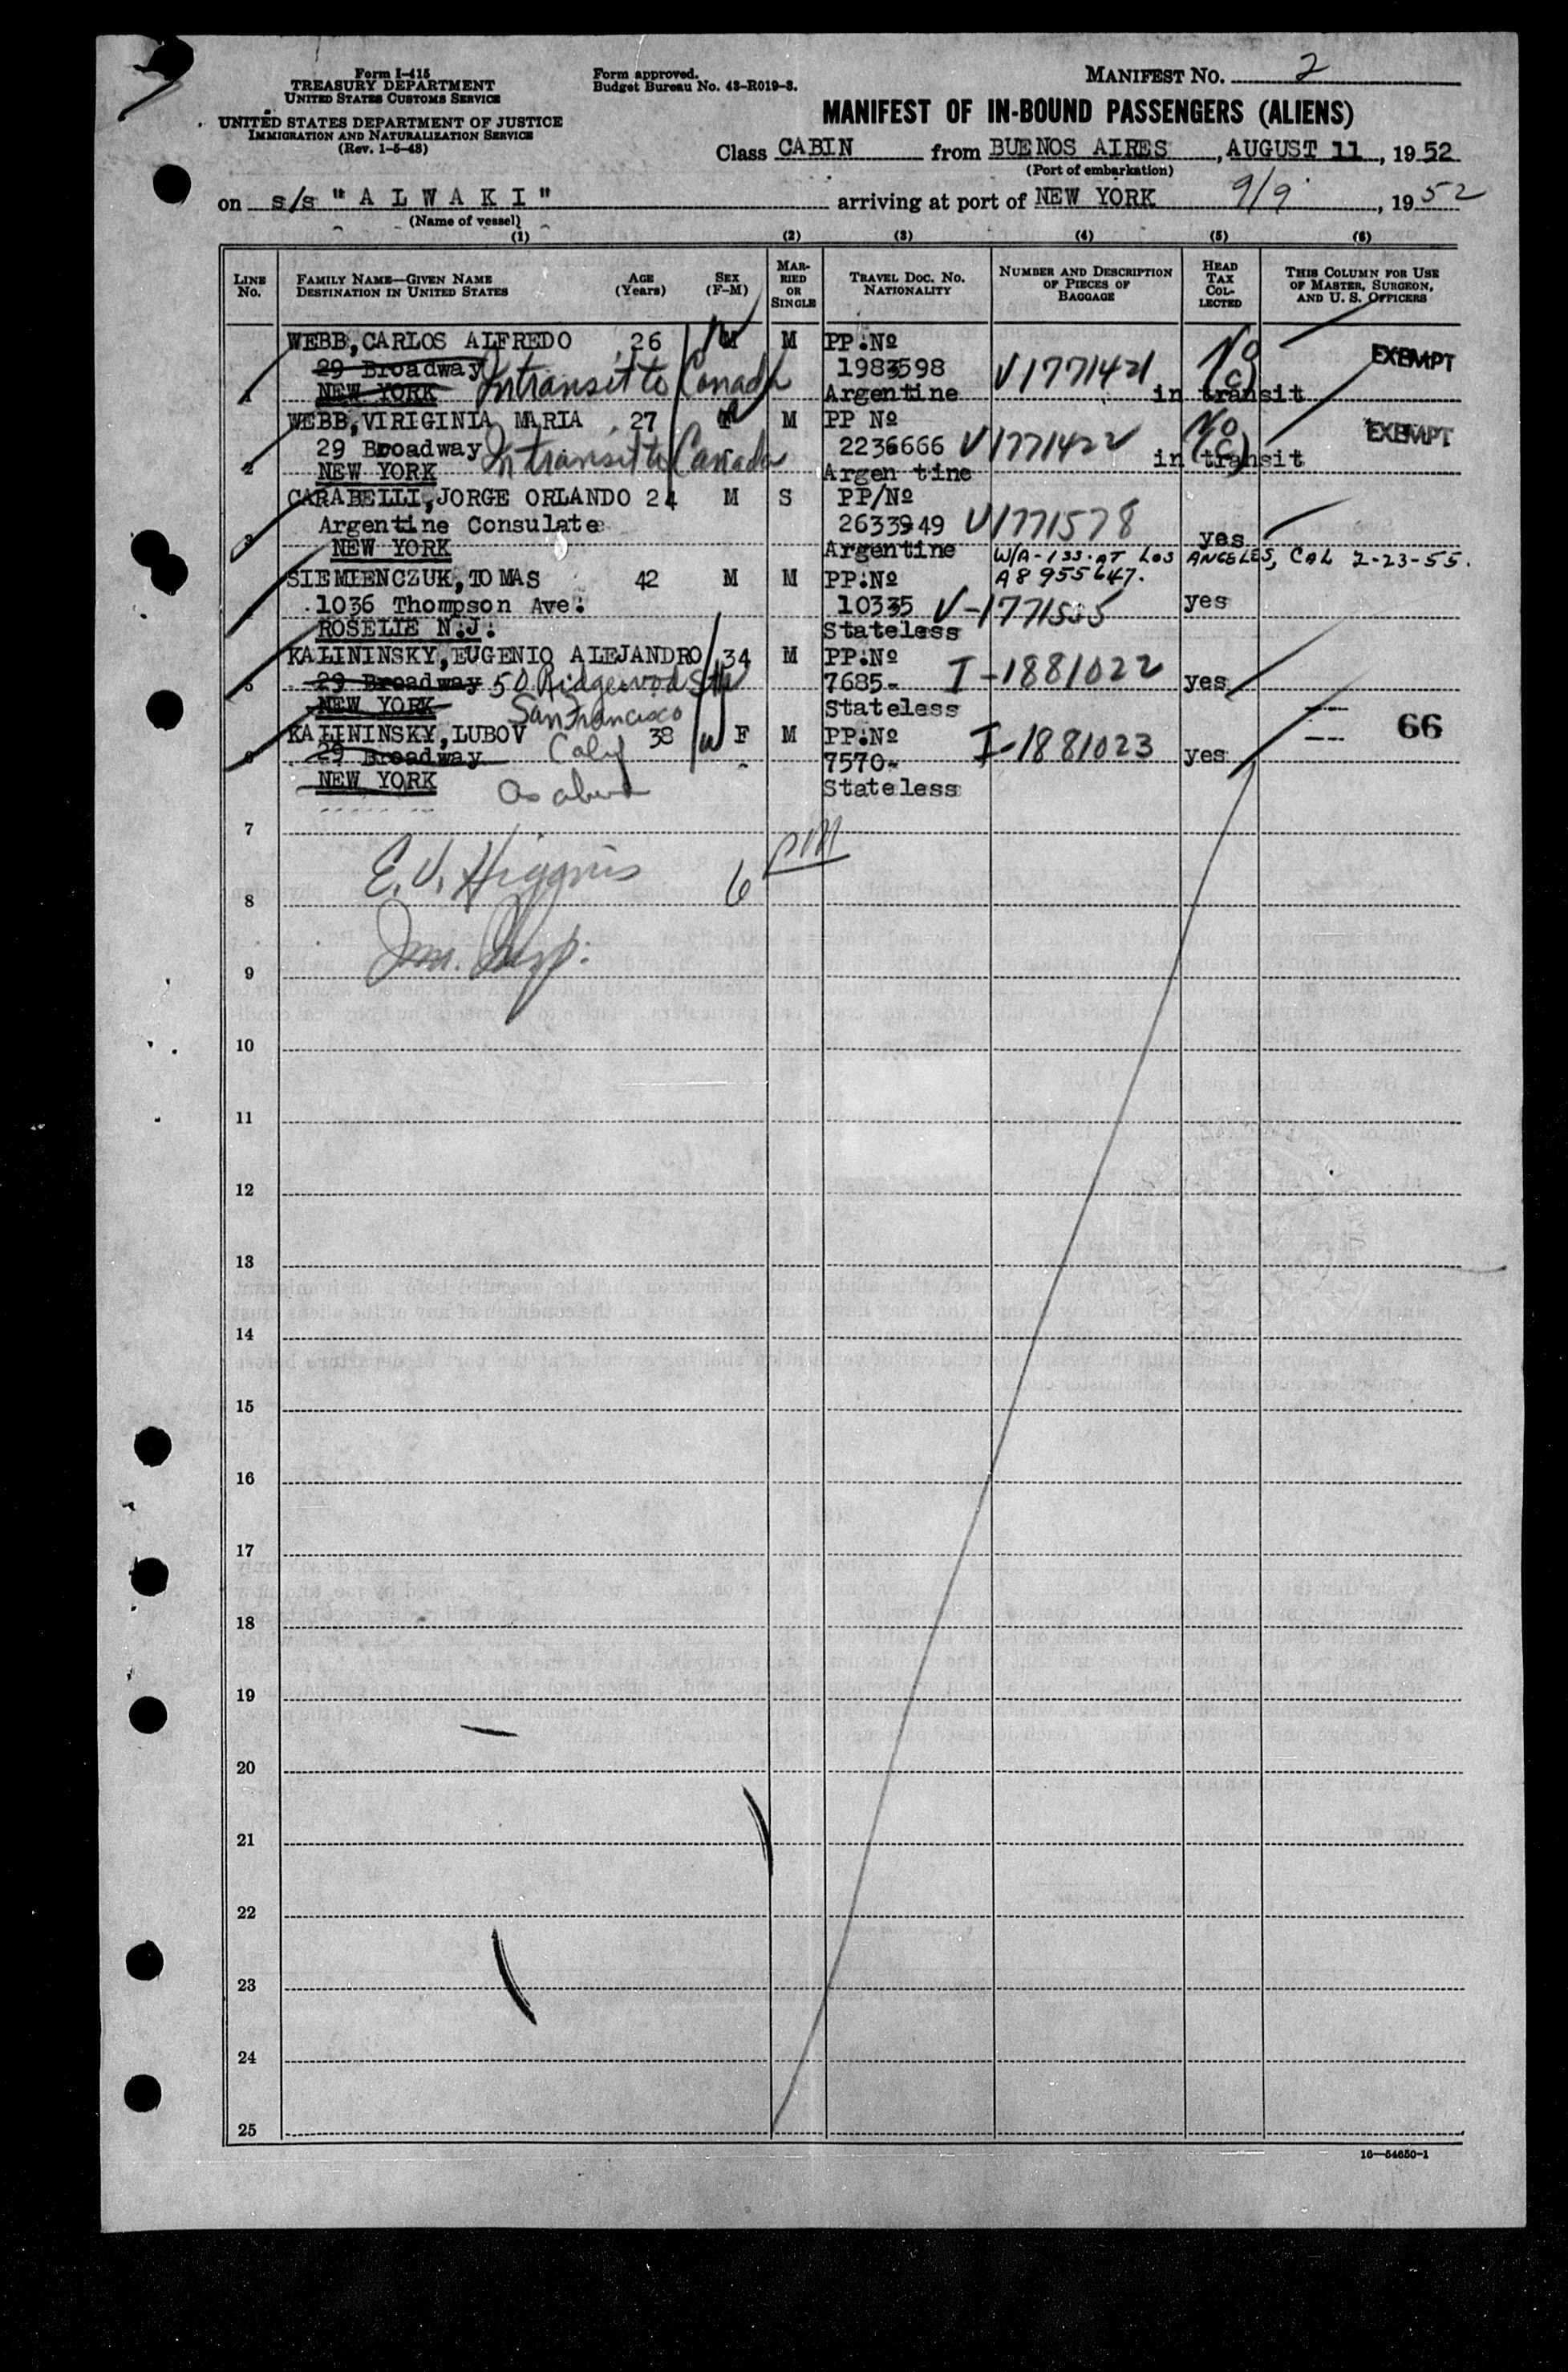 Form I-415
TREASURY DEPARTMENT
UNITED STATES CUSTOMS SERVICE
UNITED STATES DEPARTMENT OF JUSTICE
IMMIGRATION AND NATURALIZATION SERVICE
(Rev. 1-5-48)
Form approved.
Budget Bureau No. 43-R019-3.
MANIFEST NO. 2
MANIFEST OF IN-BOUND PASSENGERS (ALIENS)
Class CABIN from BUENOS AIRES, AUGUST 11, 1952
(Port of embarkation)
on s/s "A L W A K I" arriving at port of NEW YORK 9/9, 1952
(Name of vessel)
(1) (2) (3) (4) (5) (6)
LINE No.
FAMILY NAME—GIVEN NAME
DESTINATION IN UNITED STATES
AGE (Years)
SEX (F-M)
MARRIED OR SINGLE
TRAVEL DOC. NO.
NATIONALITY
NUMBER AND DESCRIPTION OF PIECES OF BAGGAGE
HEAD TAX COLLECTED
THIS COLUMN FOR USE OF MASTER, SURGEON, AND U. S. OFFICERS
WEBB, CARLOS ALFREDO 26 M M PP.Nº
29 Broadway 1983598 V1771421 No (C) EXEMPT
1 NEW YORK Intransit to Canada Argentine in transit
WEBB, VIRIGINIA MARIA 27 F M PP Nº
29 Broadway Intransit to Canada 2236666 V1771422 No (C) EXEMPT
2 NEW YORK Argen tine in transit
CARABELLI, JORGE ORLANDO 24 M S PP/Nº
Argentine Consulate 2633949 V1771578 yes
3 NEW YORK Argentine W/A-ISS. AT LOS ANGELES, CAL 2-23-55.
SIEMIENCZUK, TOMAS 42 M M PP.Nº A8 955647.
1036 Thompson Ave. 10335 V-1771505 yes
ROSELIE N.J. Stateless
KALININSKY, EUGENIO ALEJANDRO 34 M PP.Nº
5 29 Broadway 50 Ridgewood St 7685- I-1881022 yes
NEW YORK San Francisco Stateless
KALININSKY, LUBOV Calif 38 W F M PP.Nº 66
6 29 Broadway 7570- I-1881023 yes
NEW YORK As above Stateless
7
E. V. Higgins 6 pm
8
Im. Insp.
9
10
11
12
13
14
15
16
17
18
19
20
21
22
23
24
25
16—54650-1